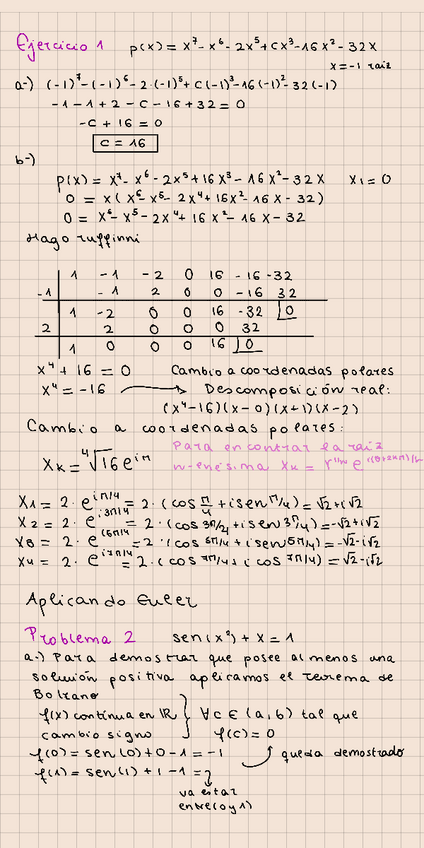 Ejercicio 1 p(x) = x⁷-x⁶-2x⁵+Cx³-16x²-32x
x=-1 raiz
a-) (-1)⁷-(-1)⁶-2·(-1)⁵+C(-1)³-16(-1)²-32(-1)
-1-1+2-C-16+32=0
-C+16=0
C=16
b-)
p(x)= x⁷-x⁶-2x⁵+16x³-16x²-32x x₁=0
0 = x(x⁶-x⁵-2x⁴+16x²-16x-32)
0 = x⁶-x⁵-2x⁴+16x²-16x-32
Hago ruffinni
1 -1 -2 0 16 -16 -32
-1 -1 2 0 0 -16 32
1 -2 0 0 16 -32 0
2 2 0 0 0 32
1 0 0 0 16 0
x⁴+16=0 Cambio a coordenadas polares
x⁴=-16 → Descomposición real:
(x⁴-16)(x-0)(x+1)(x-2)
Cambio a coordenadas polares:
Para encontrar la raiz
Xₖ = ⁴√16 e^iπ n-enésima Xₖ = r^1/n e
X₁ = 2·e^iπ/4 = 2·(cos π/4 + i sen π/4) = √2+i√2
X₂ = 2·e^i3π/4 = 2·(cos 3π/4 + i sen 3π/4) = -√2+i√2
X₃ = 2·e^i5π/4 = 2·(cos 5π/4 + i sen 5π/4) = -√2-i√2
X₄ = 2·e^i7π/4 = 2·(cos 7π/4 + i cos 7π/4) = √2-i√2
Aplicando Euler
Problema 2 sen(x²)+x=1
a.) Para demostrar que posee al menos una
solución positiva aplicamos el teorema de
Bolzano
f(x) continua en ℝ } ∀c∈(a,b) tal que
cambio signo f(c)=0
f(0)=sen(0)+0-1=-1 queda demostrado
f(1)=sen(1)+1-1=?
va estar
entre(0 y 1)